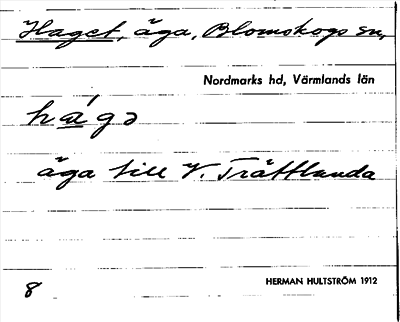 Haget, äga, Blomskogs sn,
Nordmarks hd, Värmlands län
há̱gə
äga till V. Trättlanda
8
HERMAN HULTSTRÖM 1912